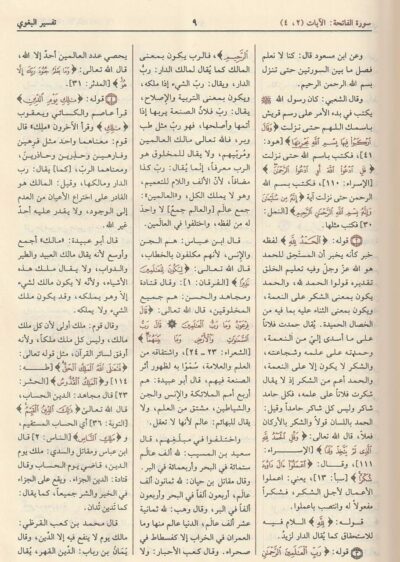 سورة الفاتحة: الآيات (٢، ٤)
٩
تفسير البغوي
وعن ابن مسعود قال: كنا لا نعلم
فصل ما بين السورتين حتى تنزل
بسم الله الرحمن الرحيم.
وقال الشعبي: كان رسول الله ﷺ
يكتب في بدء الأمر على رسم قريش
باسمك اللهم حتى نزلت ﴿وَقَالَ
ارْكَبُوا فِيهَا بِسْمِ اللَّهِ مَجْرَاهَا﴾ [هود:
٤١]، فكتب باسم الله حتى نزلت
﴿قُلِ ادْعُوا اللَّهَ أَوِ ادْعُوا الرَّحْمَنَ﴾
[الإسراء: ١١٠]، فكتب بسم الله
الرحمن حتى نزلت آية ﴿إِنَّهُ مِن سُلَيْمَانَ
وَإِنَّهُ بِسْمِ اللَّهِ الرَّحْمَنِ الرَّحِيمِ﴾ [النمل:
٣٠] فكتب مثلها.
قوله: ﴿الْحَمْدُ لِلَّهِ﴾ لفظه
خبر كأنه يخبر أن المستحق للحمد
هو الله عزّ وجلّ وفيه تعليم الخلق
تقديره قولوا الحمد لله، والحمد
يكون بمعنى الشكر على النعمة،
ويكون بمعنى الثناء عليه بما فيه من
الخصال الحميدة. يُقال حمدت فلاناً
على ما أسدى إليّ من النعمة،
وحمدته على علمه وشجاعته،
والشكر لا يكون إلا على النعمة،
والحمد أعم من الشكر إذ لا يقال
شكرت فلاناً على علمه، فكل حامد
شاكر وليس كل شاكر حامداً وقيل:
الحمد باللسان قولاً والشكر بالأركان
فعلاً، قال الله تعالى: ﴿وَقُلِ الْحَمْدُ لِلَّهِ
الَّذِي لَمْ يَتَّخِذْ وَلَدًا﴾ [الإسراء:
١١١]، وقال: ﴿اعْمَلُوا آلَ دَاوُدَ
شُكْرًا﴾ [سبأ: ١٣]، يعني: اعملوا
الأعمال لأجل الشكر، فشكراً
مفعولاً له وانتصب باعملوا.
قوله: ﴿لِلَّهِ﴾ اللام فيه
للاستحقاق كما يقال الدار لزيد.
قوله: ﴿رَبِّ الْعَالَمِينَ الرَّحْمَنِ
الرَّحِيمِ﴾، فالرب يكون بمعنى
المالك كما يُقال لمالك الدار: ربُّ
الدار، ويُقال: ربُّ الشيء إذا ملكه،
ويكون بمعنى التربية والإصلاح،
يُقال: ربَّ فلانٌ الصنعة يربها إذا
أتمها وأصلحها، فهو ربّ مثل طب
وبر، فالله تعالى مالك العالمين
ومُربّيهم، ولا يقال للمخلوق هو
الرب معرفاً، إنما يُقال: ربُّ كذا
مضافاً، لأن الألف واللام للتعميم،
وهو لا يملك الكل، والعالمين:
جمع عالَم [والعالم جمعٌ] لا واحدَ
له من لفظه، واختلفوا في العالمين.
قال ابن عباس: هم الجن
والإنس، لأنهم مكلفون بالخطاب،
قال الله تعالى: ﴿لِيَكُونَ لِلْعَالَمِينَ
نَذِيرًا﴾ [الفرقان: ١]. وقال قتادة
ومجاهد والحسن: هم جميع
المخلوقين، قال الله تعالى: ﴿قَالَ
فِرْعَوْنُ وَمَا رَبُّ الْعَالَمِينَ ۞ قَالَ رَبُّ
السَّمَاوَاتِ وَالْأَرْضِ وَمَا بَيْنَهُمَا﴾
[الشعراء: ٢٣ ـ ٢٤]، واشتقاقه من
العلم والعلامة، سُمّوا به لظهور أثر
الصنعة فيهم، قال أبو عبيدة: هم
أربع أمم الملائكة والإنس والجن
والشياطين، مشتق من العلم، ولا
يقال للبهائم: عالم لأنها لا تعقل.
واختلفوا في مبلغهم، قال
سعيد بن المسيب: لله ألف عالم
ستمائة في البحر وأربعمائة في البر.
وقال مقاتل بن حيان: لله ثمانون ألف
عالم، أربعون ألفاً في البحر وأربعون
ألفاً في البر. وقال وهب: لله ثمانية
عشر ألف عالم، الدنيا عالم منها وما
العمران في الخراب إلا كفسطاط في
صحراء. وقال كعب الأحبار: ولا
يحصي عدد العالمين أحدٌ إلا الله،
قال الله تعالى: ﴿وَمَا يَعْلَمُ جُنُودَ رَبِّكَ إِلَّا هُوَ﴾
[المدثر: ٣١].
قوله: ﴿مَالِكِ يَوْمِ الدِّينِ﴾
قرأ عاصم والكسائي ويعقوب
﴿مَالِكِ﴾ وقرأ الآخرون «ملِك» قال
قوم: معناهما واحد مثل فرهين
وفارهين وحذرين وحاذرين،
ومعناهما الربّ، [كما] يقال: رب
الدار ومالكها، وقيل: المالك هو
القادر على اختراع الأعيان من العدم
إلى الوجود، ولا يقدر عليه أحدٌ
غير الله.
قال أبو عبيدة: «مالك» أجمع
وأوسع لأنه يقال مالك العبيد والطير
والدواب، ولا يقال ملك هذه
الأشياء، ولأنه لا يكون مالك لشيء
إلاّ وهو يملكه، وقد يكون ملك
الشيء ولا يملكه.
وقال قوم: ملك أولى لأن كل ملك
مالك، وليس كل مالك ملكاً، ولأنه
أوفق لسائر القرآن، مثل قوله تعالى:
﴿فَتَعَالَى اللَّهُ الْمَلِكُ الْحَقُّ﴾ [طه:
١١٤] و﴿الْمَلِكُ الْقُدُّوسُ﴾ [الحشر:
٢٣] قال مجاهد: الدين الحساب،
قال الله تعالى: ﴿ذَلِكَ الدِّينُ الْقَيِّمُ﴾
[التوبة: ٣٦] أي الحساب المستقيم،
و﴿مَلِكِ النَّاسِ﴾ [الناس: ٢] قال
ابن عباس ومقاتل والسدي: ملك يوم
الدين، قاضي يوم الحساب وقال
قتادة: الدين الجزاء. ويقع على الجزاء
في الخير والشر جميعاً، كما يقال:
كما تَدين تُدان.
قال محمد بن كعب القرظي:
مالك يوم لا ينفع فيه إلا الدّين، وقال
يَمَانُ بن رِباب: الدين القهر، يُقال